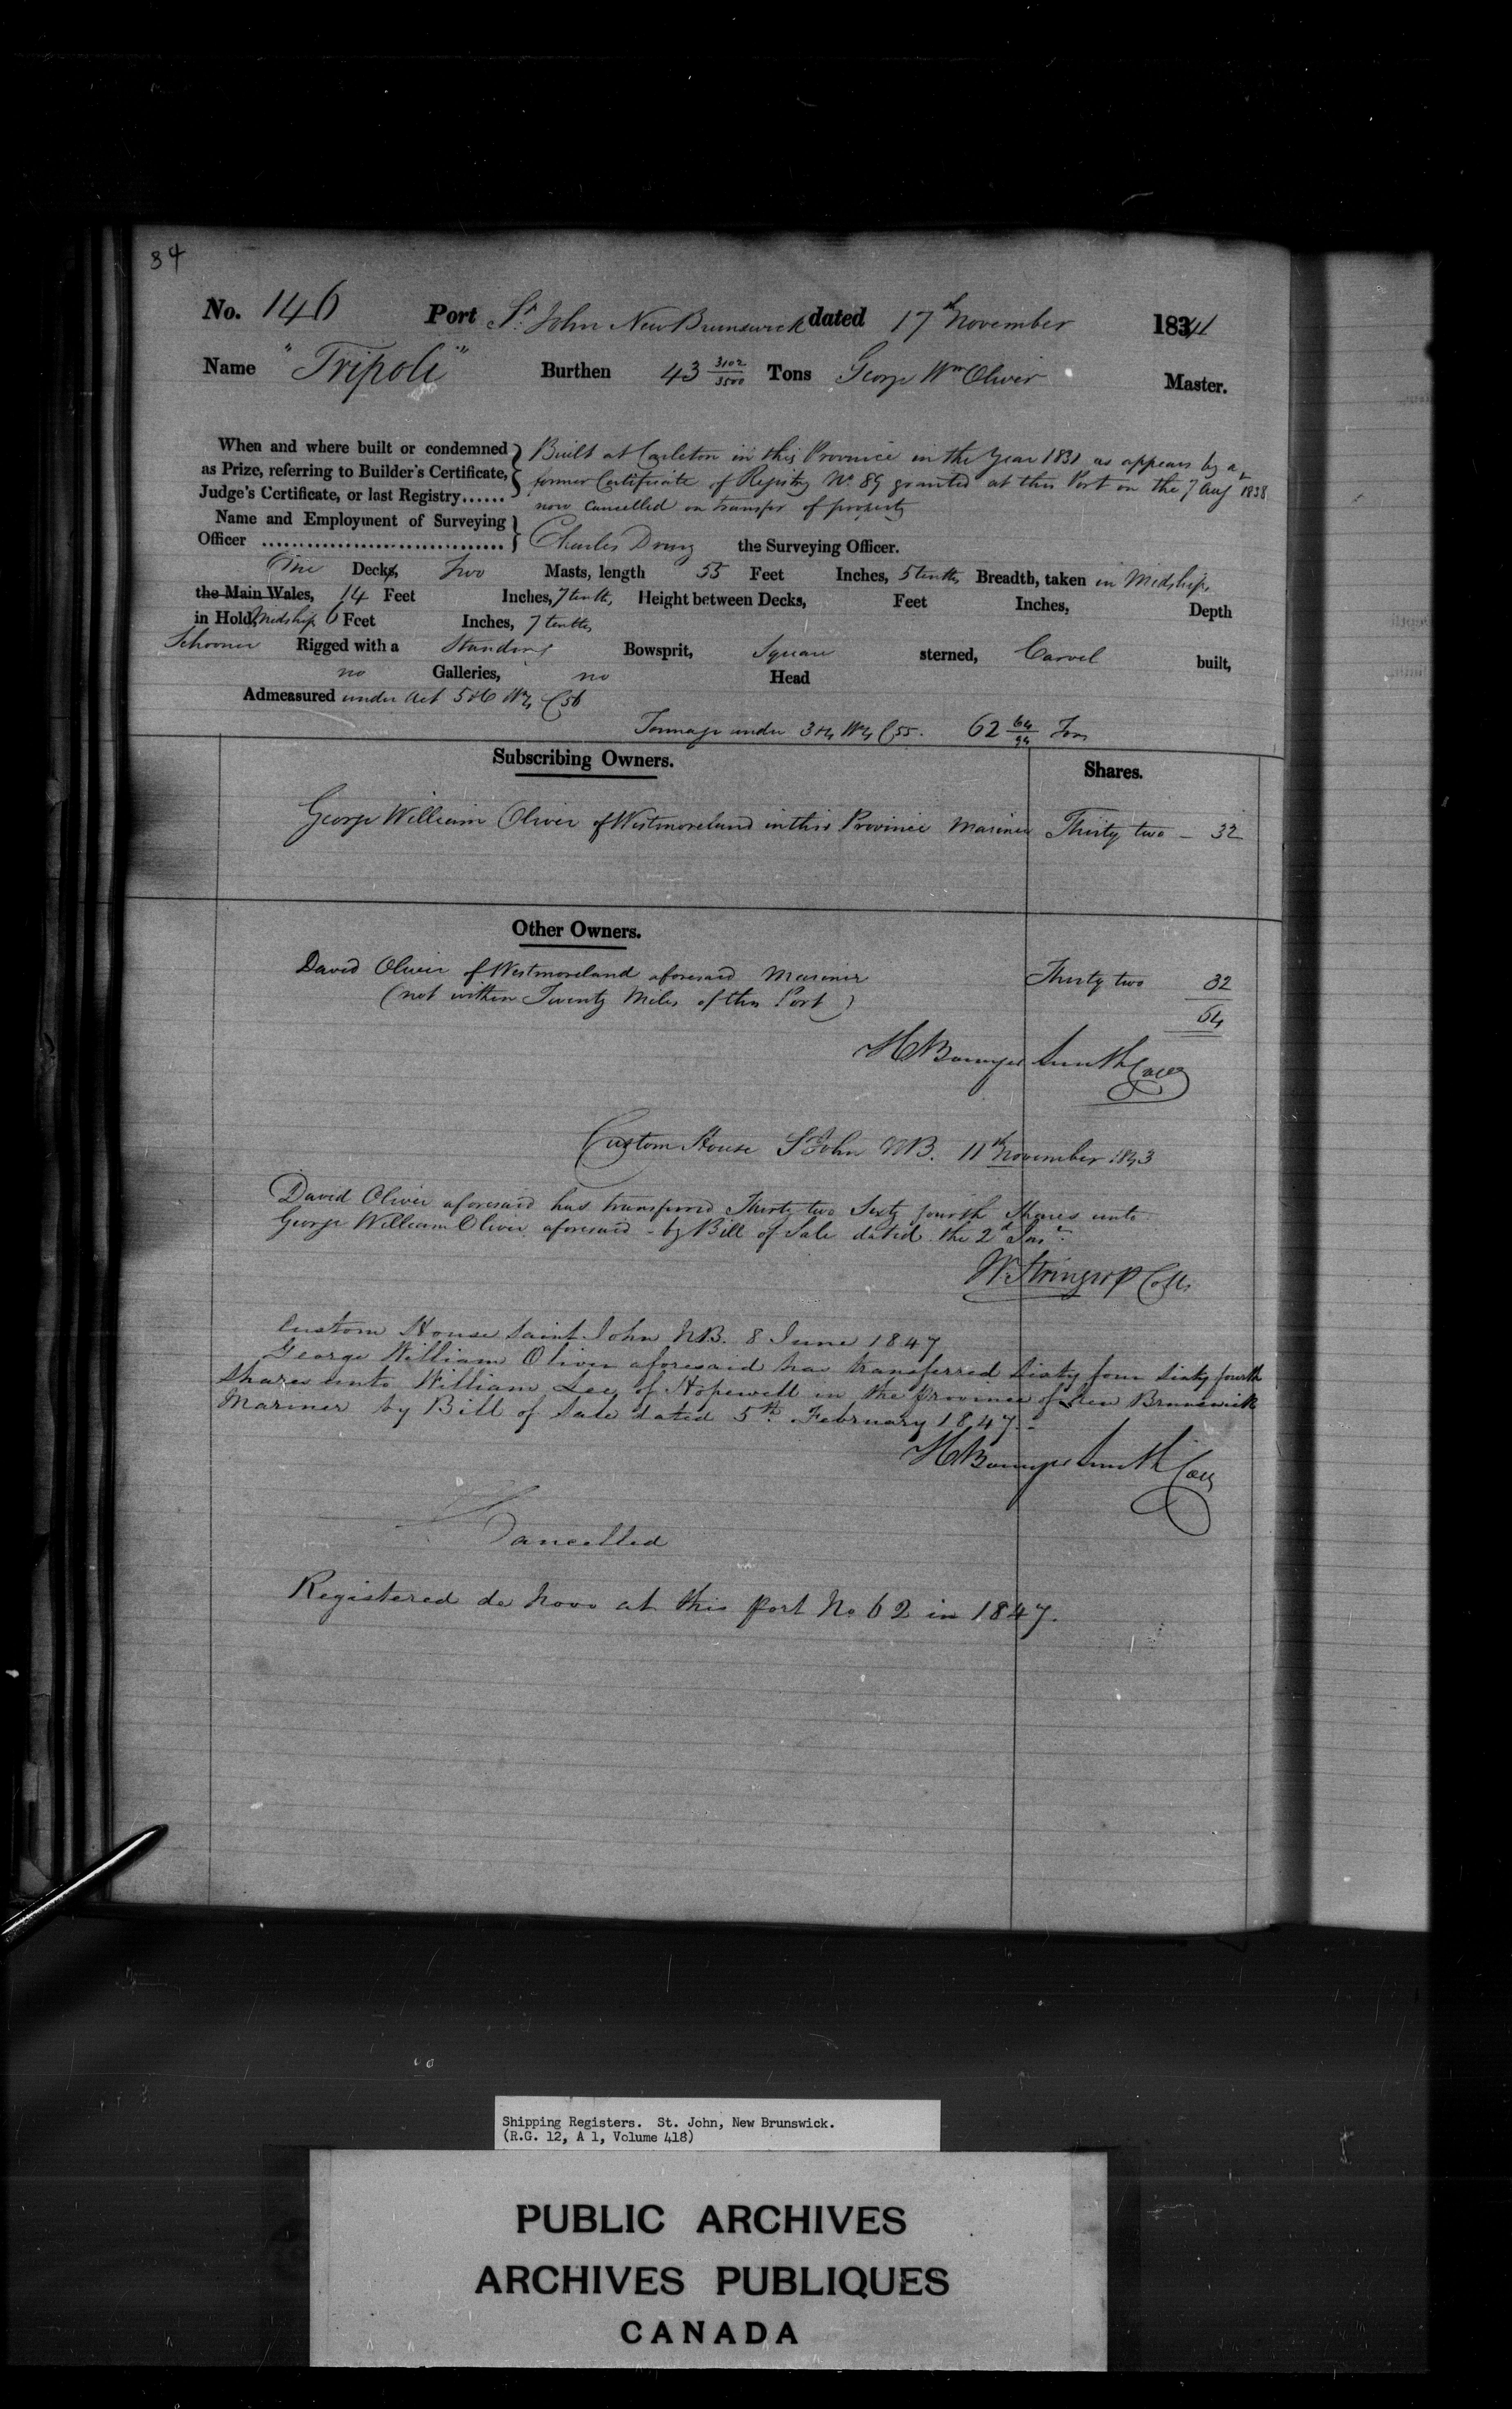 84
No. 146 Port St. John New Brunswick dated 17th November 1841
Name "Tripoli" Burthen 43 3102/3500 Tons George Wm Oliver Master.
When and where built or condemned as Prize, referring to Builder's Certificate, Judge's Certificate, or last Registry......
Built at Carleton in this Province in the Year 1831 as appears by a
former Certificate of Registry No. 89 granted at this Port on the 7 Augt 1838
now Cancelled on transfer of property
Name and Employment of Surveying
Officer ................................ Charles Drury the Surveying Officer.
One Decks, Two Masts, length 55 Feet Inches, 5 tenths, Breadth, taken in Midships
the Main Wales, 14 Feet Inches, 7 tenths, Height between Decks, Feet Inches, Depth
in Hold, Midship 6 Feet Inches, 7 tenths
Schooner Rigged with a Standing Bowsprit, Square sterned, Carvel built,
no Galleries, no Head
Admeasured under Act 5 & 6 W4 C56
Tonnage under 3 & 4 W4 C55. 62 64/94 Tons
Subscribing Owners. Shares.
George William Oliver of Westmoreland in this Province Mariner Thirty two - 32
Other Owners.
David Oliver of Westmoreland aforesaid Mariner Thirty two 32
(not within Twenty Miles of this Port)
64
H Bowyer Smith Collr
Custom House St John NB. 11th November 1843
David Oliver aforesaid has transferred Thirty two Sixty fourth Shares unto
George William Oliver aforesaid - by Bill of Sale dated the 2d Inst.
Custom House Saint John NB. 8 June 1847
George William Oliver aforesaid has transferred Sixty four Sixty fourth
Shares unto William Lee of Hopewell in the Province of New Brunswick
Mariner by Bill of Sale dated 5th February 1847.-
H Bowyer Smith Collr
Cancelled
Registered de Novo at this port No 62 in 1847.
Shipping Registers. St. John, New Brunswick.
(R.G. 12, A 1, Volume 418)
PUBLIC ARCHIVES
ARCHIVES PUBLIQUES
CANADA